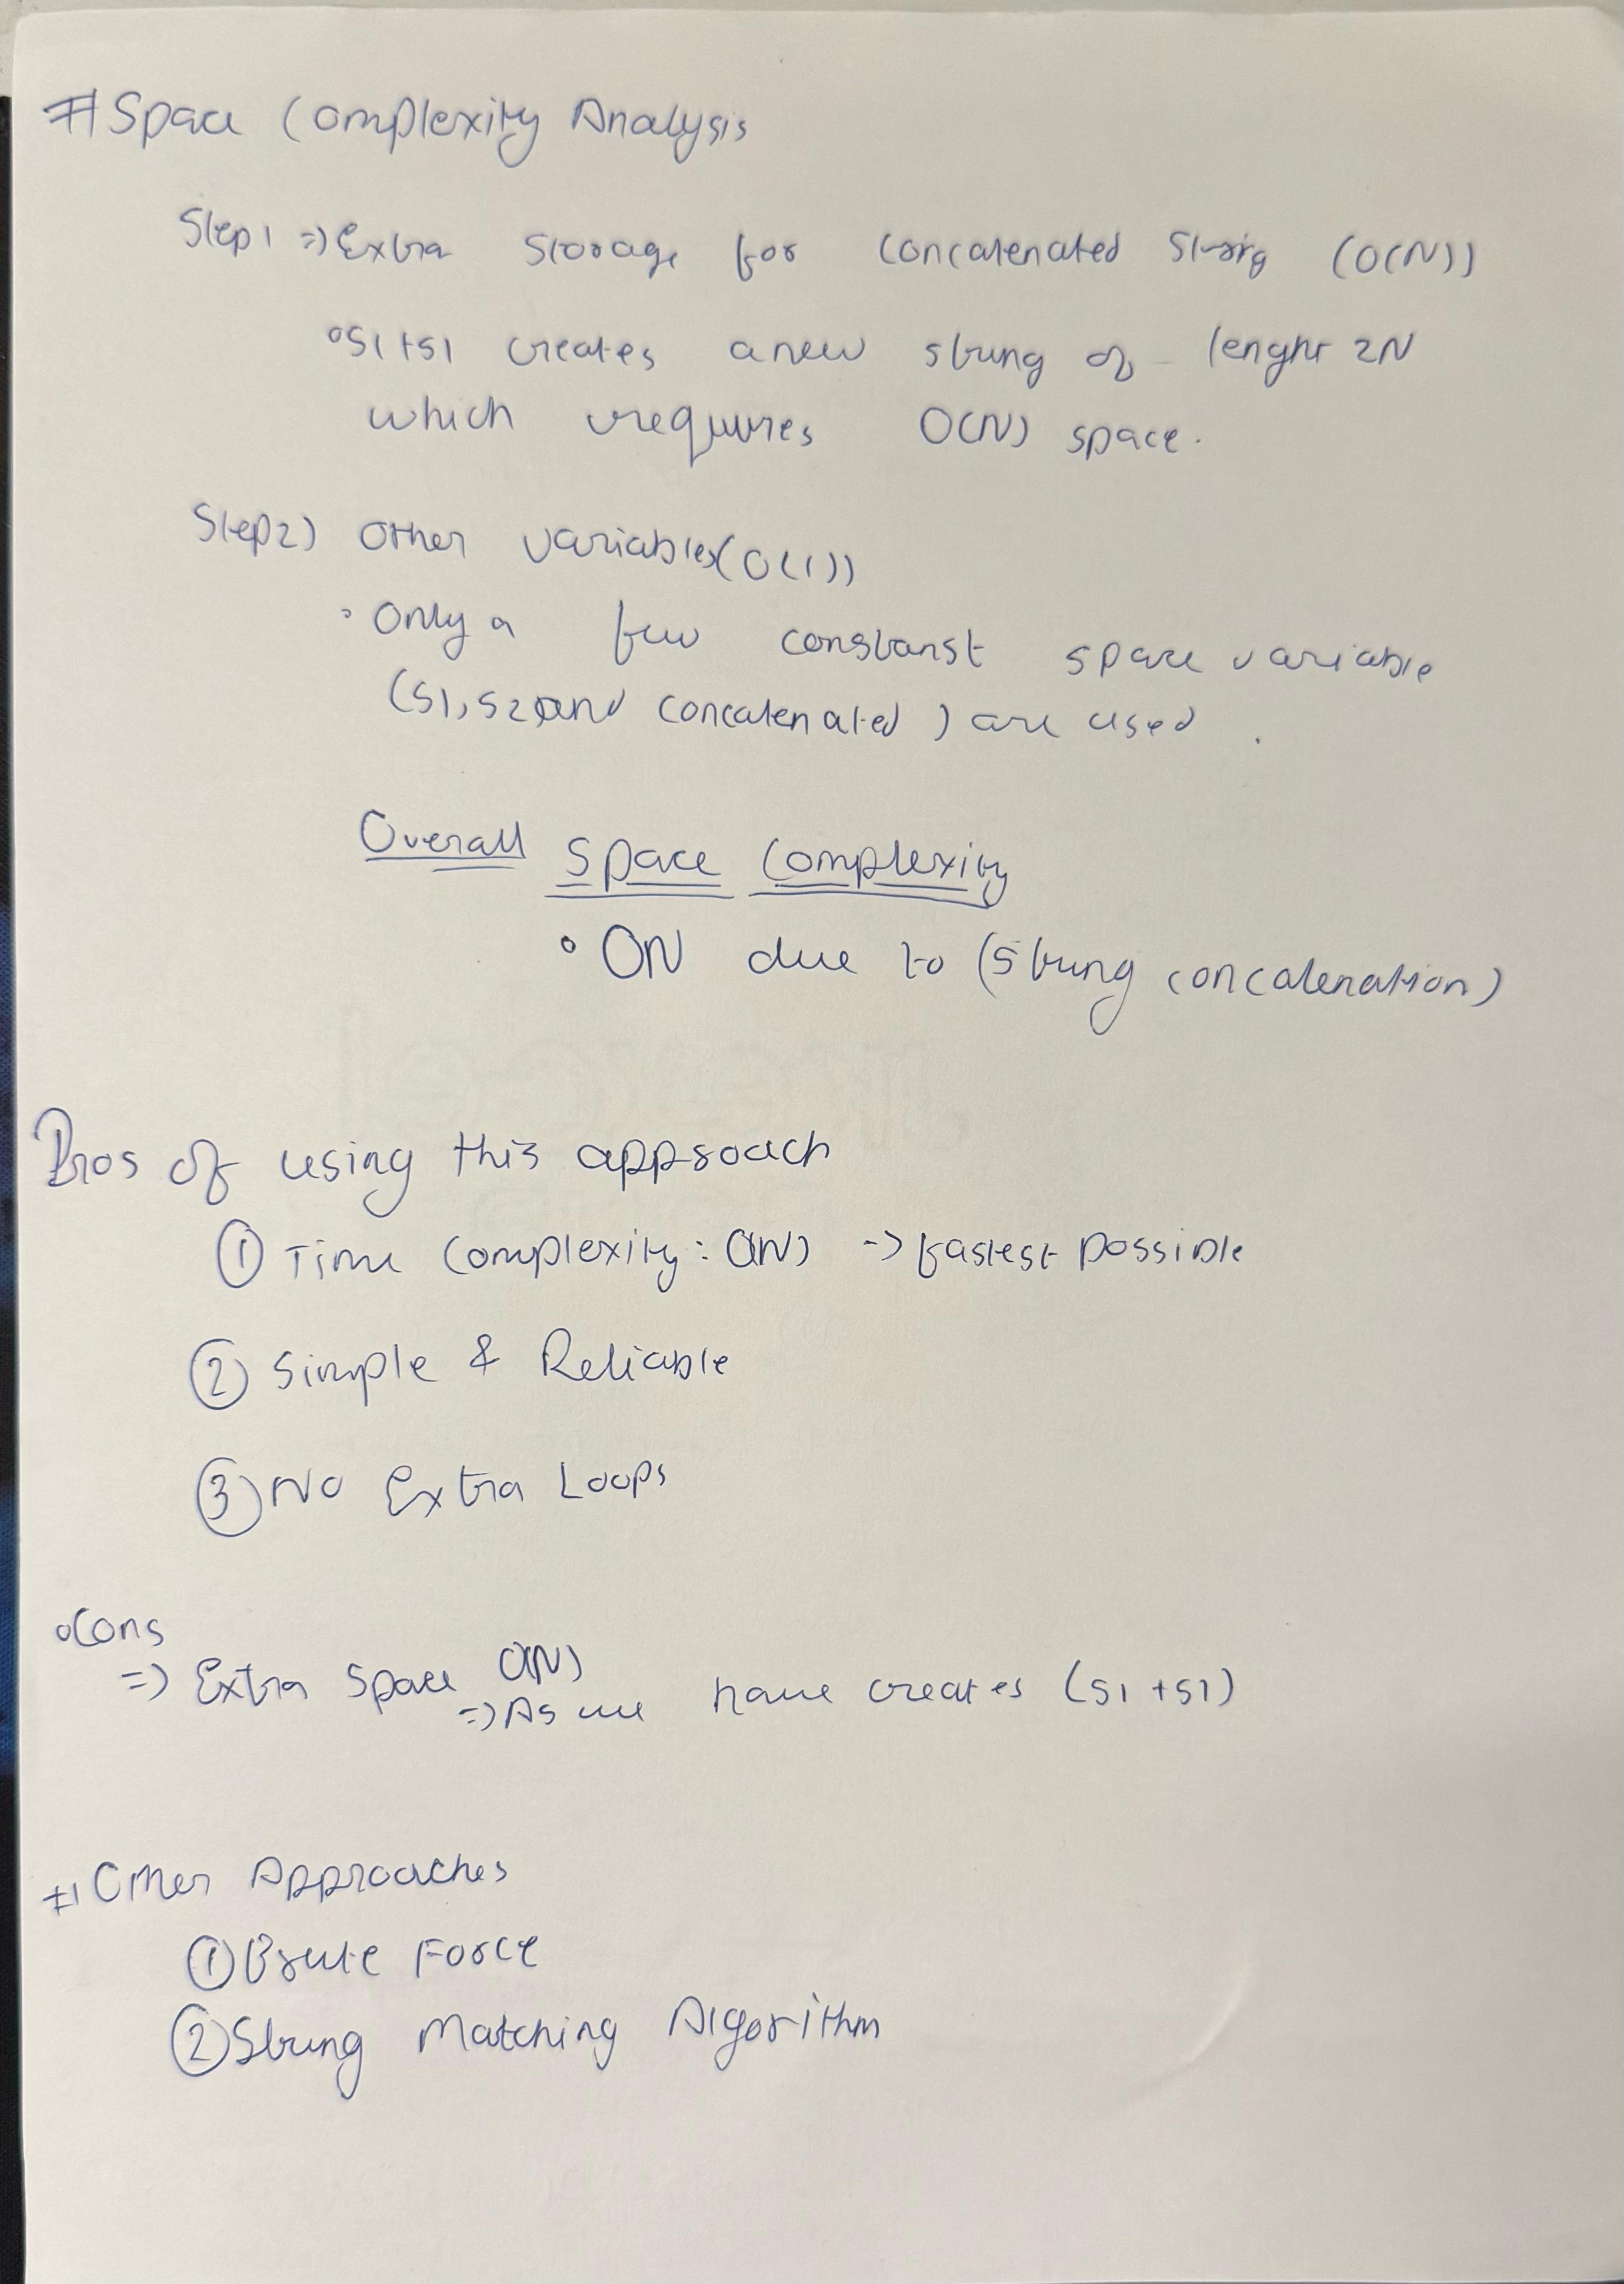 # Space Complexity Analysis
Step1 => Extra Storage for concatenated String (O(N))
°S1+S1 creates a new string of lenght 2N
which requires O(N) space.
Step2) Other variables(O(1))
° Only a few constanst space variable
(S1, S2 and concatenated) are used.
Overall Space Complexity
° ON due to (String concatenation)
Pros of using this approach
① Time Complexity: O(N) -> fastest possible
② Simple & Reliable
③ No Extra Loops
°Cons
=> Extra Space O(N)
=> As we have creates (S1+S1)
# Other Approaches
① Brute Force
② String Matching Algorithm